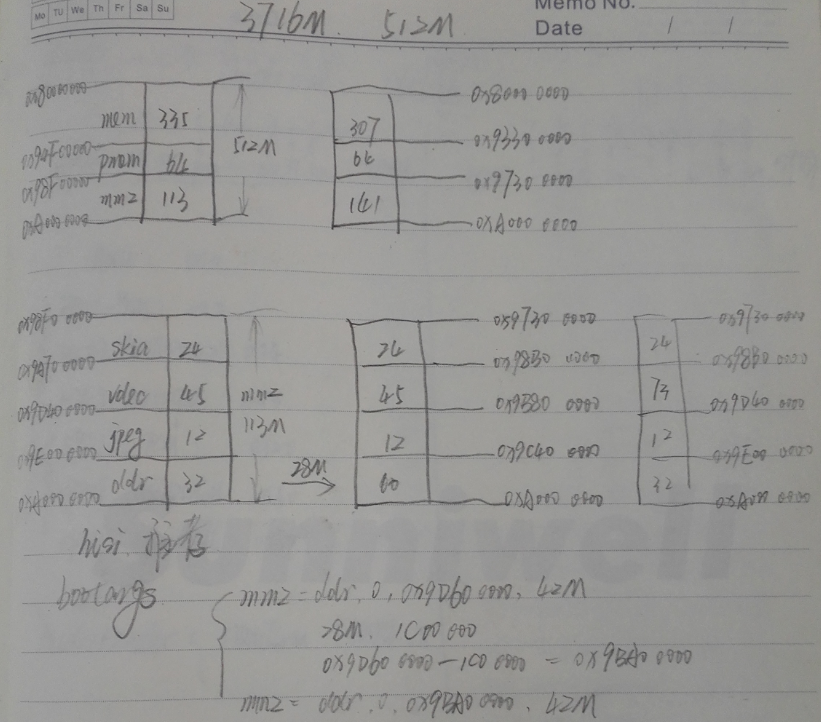 Mo Tu We Th Fr Sa Su
3716M. 512M
Memo No.
Date / /
0x80000000
mem 335
0x94F00000
pram 64
0x98F00000
mmz 113
0xA0000000
512M
307
64
141
0x8000 0000
0x9330 0000
0x9730 0000
0xA000 0000
0x98F0 0000
skia 24
0x9A70 0000
vdec 45
0x9D40 0000
jpeg 12
0x9E00 0000
ddr 32
0xA000 0000
mmz
113M
28M
24
45
12
60
0x9730 0000
0x98B0 0000
0x9B80 0000
0x9C40 0000
0xA000 0000
24
73
12
32
0x9730 0000
0x98B0 0000
0x9D40 0000
0x9E00 0000
0xA000 0000
hisi 推荐
bootargs
mmz = ddr, 0, 0x9D60 0000, 42M
28M. 1C00 000
0x9D60 0000 - 1C0 0000 = 0x9BA0 0000
mmz = ddr, 0, 0x9BA0 0000, 42M